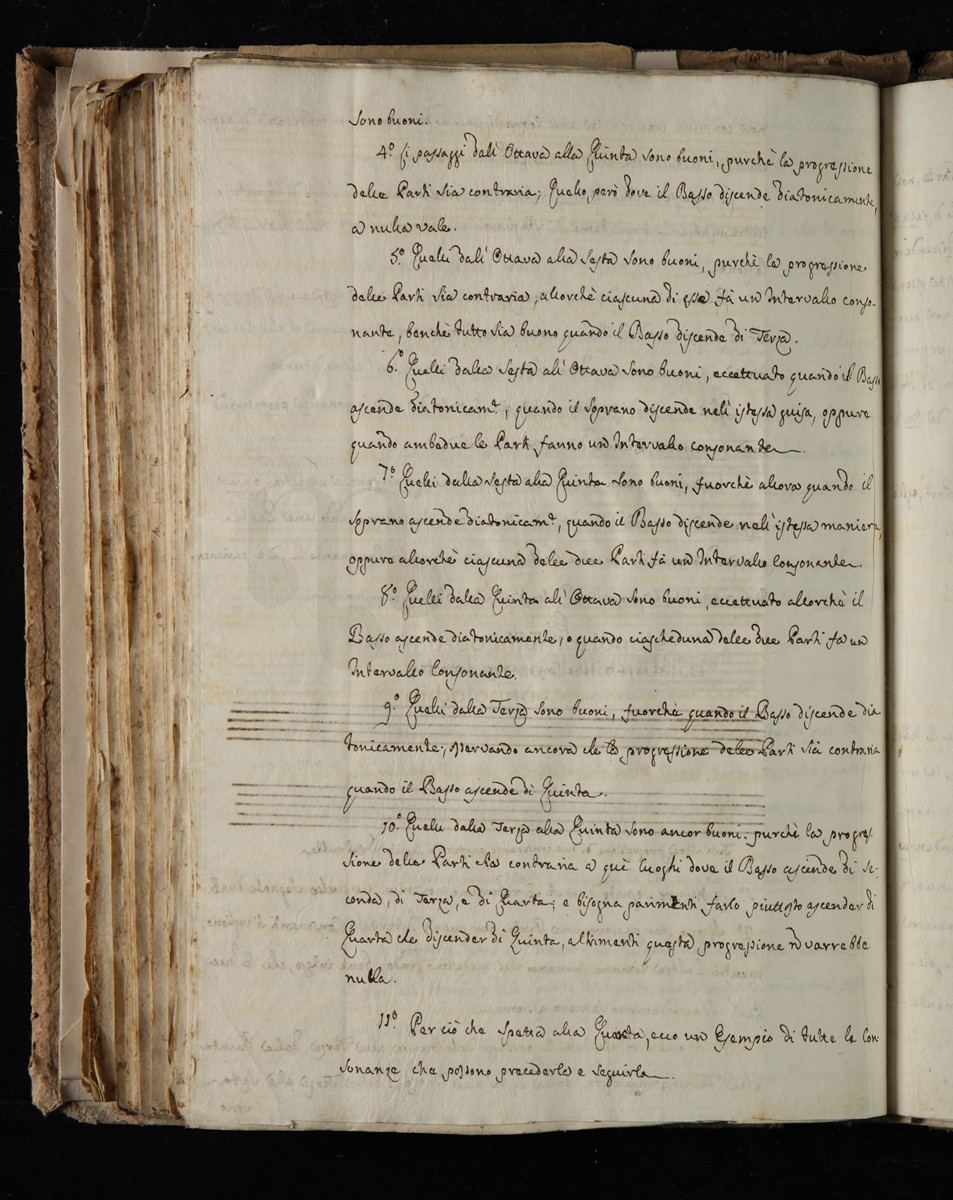 sono buoni.
4.º I passaggi dall'Ottava alla Quinta sono buoni, purchè la progressione
delle Parti sia contraria; Quello però dove il Basso discende diatonicamente,
a nulla vale.
5.º Quelli dall'Ottava alla Sesta sono buoni, purchè la progressione
delle Parti sia contraria, allorchè ciascuna di esse fà un Intervallo conso-
nante, benchè tutto sia buono quando il Basso discende di Terza.
6.º Quelli dalla Sesta all'Ottava sono buoni, eccettuato quando il Basso
ascende diatonicam.e, quando il Soprano discende nell'istessa guisa, oppure
quando ambedue le Parti fanno un Intervallo consonante.
7.º Quelli dalla Sesta alla Quinta sono buoni, fuorchè allora quando il
Soprano ascende diatonicam.e, quando il Basso discende nell'istessa maniera,
oppure allorchè ciascuna delle due Parti fà un Intervallo Consonante.
8.º Quelli dalla Quinta all'Ottava sono buoni, eccettuato allorchè il
Basso ascende diatonicamente, o quando ciascheduna delle due Parti fa un
Intervallo Consonante.
9.º Quelli dalla Terza sono buoni, fuorchè quando il Basso discende dia
tonicamente; osservando ancora che la progressione delle Parti sia contraria
quando il Basso ascende di Quinta.
10.º Quelli dalla Terza alla Quinta sono ancor buoni: purchè la progres-
sione delle Parti sia contraria a que' luoghi dove il Basso ascende di Se-
conda, di Terza, e di Quarta; e bisogna parimenti farlo piuttosto ascender di
Quarta che discender di Quinta, altrimenti questa progressione ñ varrebbe
nulla.
11.º Per ciò che spetta alla Quarta, ecco un Esempio di tutte le Con
sonanze che possono precederla e seguirla.